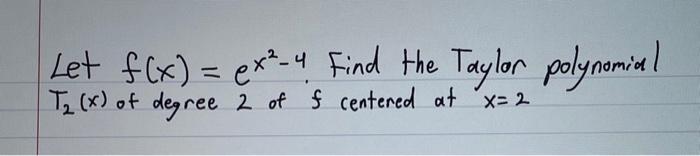 Let f(x) = e^{x²-4}. Find the Taylor polynomial
T₂(x) of degree 2 of f centered at x=2